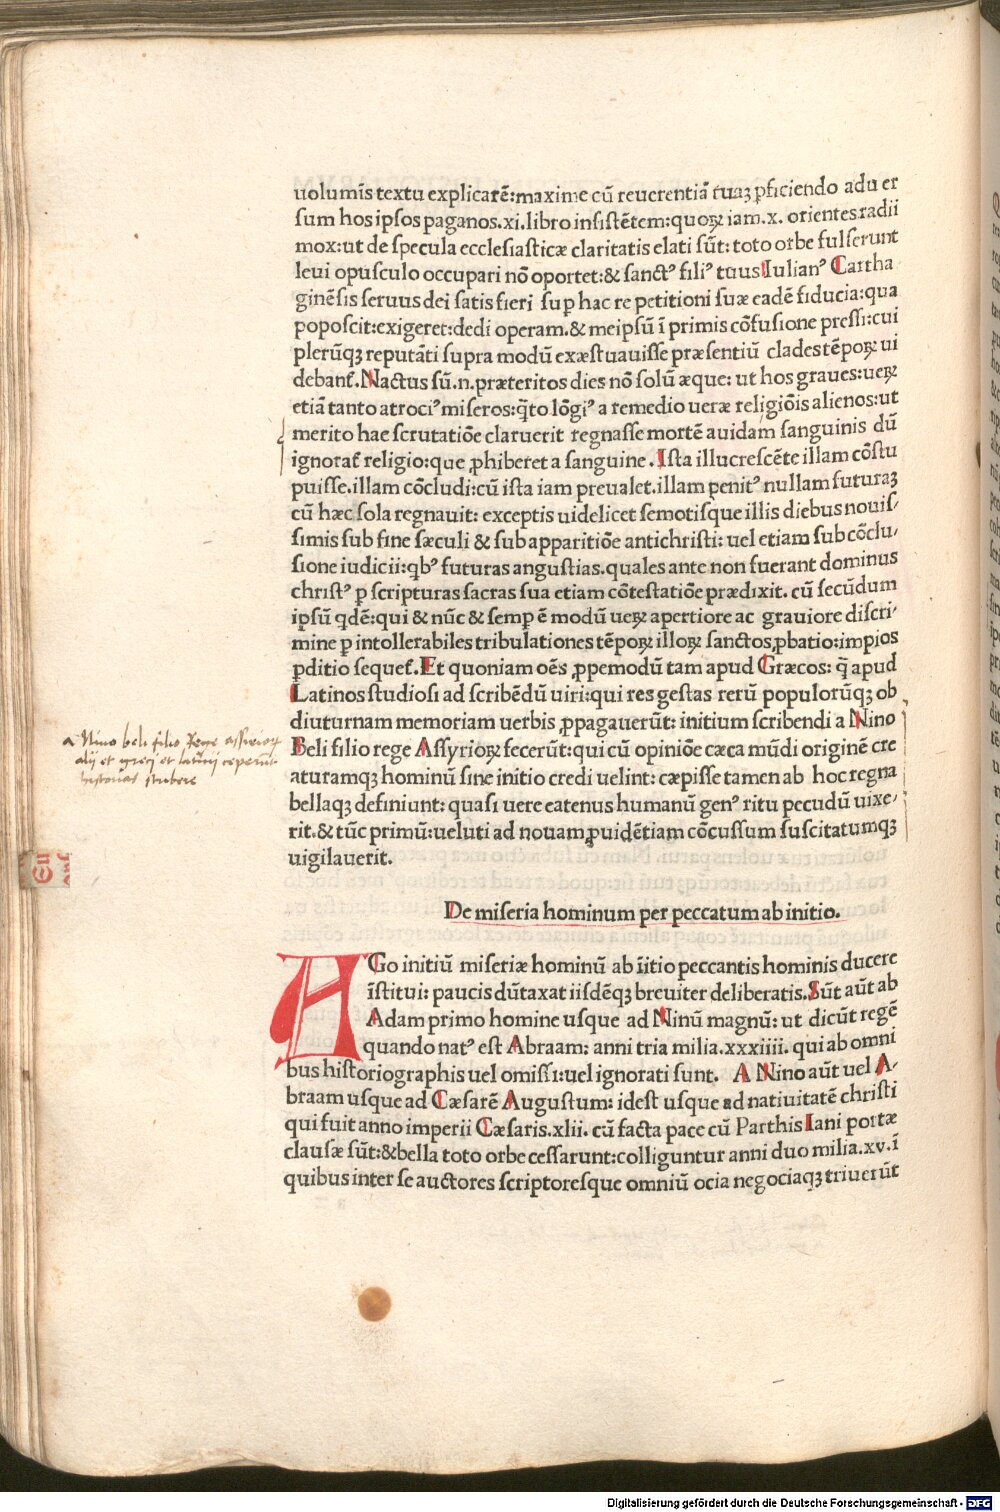 uolumīs textu explicarē:maxime cū reuerentiā tuaꝫ ꝑficiendo adu er
ſum hos ipſos paganos.xi.libro inſiſtētem:quoꝝ iam.x. orientes radii
mox:ut de ſpecula eccleſiaſticæ claritatis elati ſūt: toto orbe fulſerunt
leui opuſculo occupari nō oportet:& ſanctꝰ filiꝰ tuus Iulianꝰ Cartha
ginēſis ſeruus dei ſatis fieri ſuꝑ hac re petitioni ſuæ eadē fiducia:qua
popoſcit:exigeret:dedi operam.& meipſū ī primis cōfuſione preſſi:cui
plerūqꝫ reputāti ſupra modū exæſtuauiſſe præſentiū cladestēpoꝝ ui
debant̄.Nactus ſū.n.præteritos dies nō ſolū æque: ut hos graues:ueꝝ
etiā tanto atrociꝰ miſeros:q̄to lōgiꝰ a remedio ueræ religiōis alienos:ut
merito hae ſcrutatiōe claruerit regnaſſe mortē auidam ſanguinis dū
ignorat̄ religio:que ꝓhiberet a ſanguine.Iſta illucreſcēte illam cōſtu
puiſſe.illam cōcludi:cū iſta iam preualet.illam penitꝰ nullam futuraꝫ
cū hæc ſola regnauit: exceptis uidelicet ſemotiſque illis diebus nouiſ/
ſimis ſub fine ſæculi & ſub apparitiōe antichriſti: uel etiam ſub cōclu/
ſione iudicii:qbꝰ futuras anguſtias.quales ante non fuerant dominus
chriſtꝰ ꝑ ſcripturas ſacras ſua etiam cōteſtatiōe prædixit. cū ſecūdum
ipſū qdē:qui & nūc & ſemꝑ ē modū ueꝝ apertiore ac grauiore diſcri/
mine ꝑ intollerabiles tribulationes tēpoꝝ illoꝝ ſanctos ꝓbatio:impios
ꝑditio ſequet̄.Et quoniam oēs ꝓpemodū tam apud Græcos: q̄ apud
Latinos ſtudioſi ad ſcribēdū uiri:qui res geſtas rerū populorūqꝫ ob
diuturnam memoriam uerbis ꝓpagauerūt: initium ſcribendi a Nino
Beli filio rege Aſſyrioꝝ fecerūt:qui cū opiniōe cæca mūdi originē cre
aturamqꝫ hominū ſine initio credi uelint: cæpiſſe tamen ab hoc regna
bellaqꝫ definiunt: quaſi uere eatenus humanū genꝰ ritu pecudū uixe/
rit.& tūc primū:ueluti ad nouam ꝓuidētiam cōcuſſum ſuſcitatumqꝫ
uigilauerit.
^ Nino beli filio Rege aſſirioꝝ
alij et greci et latinij ceperunt
historias scribere
De miſeria hominum per peccatum ab initio.
AGo initiū miſeriæ hominū ab īitio peccantis hominis ducere
īſtitui: paucis dūtaxat iiſdēqꝫ breuiter deliberatis.Sūt aūt ab
Adam primo homine uſque ad Ninū magnū: ut dicūt regē
quando natꝰ eſt Abraam: anni tria milia.xxxiiii. qui ab omni
bus hiſtoriographis uel omiſſi:uel ignorati ſunt. A Nino aūt uel A/
braam uſque ad Cæſarē Auguſtum: ideſt uſque ad natiuitatē chriſti
qui fuit anno imperii Cæſaris.xlii. cū facta pace cū Parthis Iani portæ
clauſæ ſūt:&bella toto orbe ceſſarunt:colliguntur anni duo milia.xv.ī
quibus inter ſe auctores ſcriptoreſque omniū ocia negociaqꝫ triuerūt
Digitalisierung gefördert durch die Deutsche Forschungsgemeinschaft - DFG